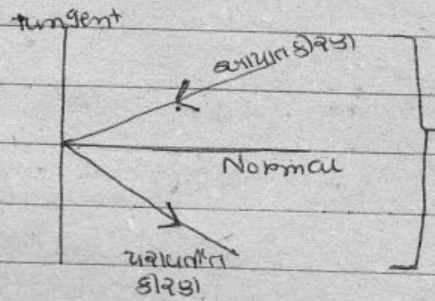 tungent
આપાત કીરણ
Normal
પરાવર્તીત
કીરણ